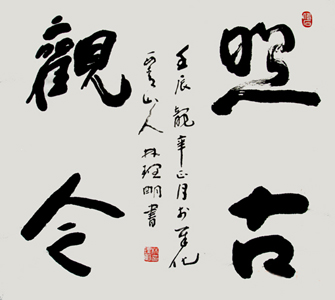 照古
壬辰龍年正月於奉化
山人林理明書
觀今